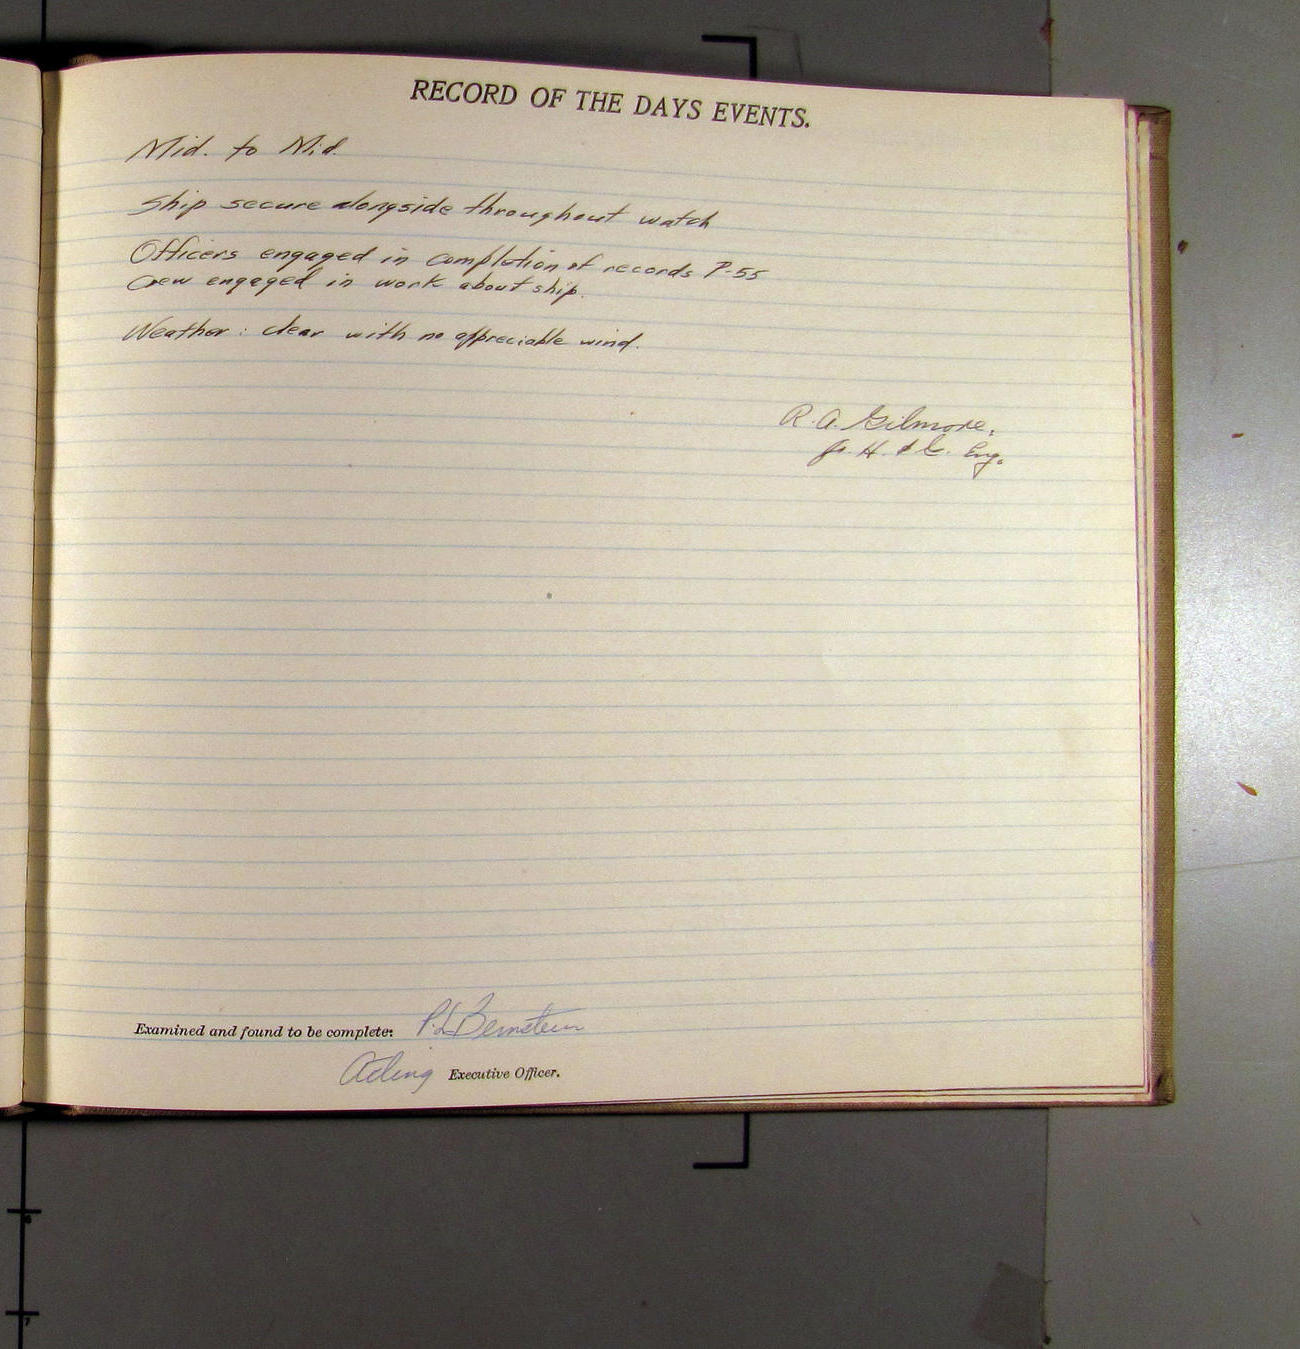 RECORD OF THE DAYS EVENTS.
Mid. to Mid.
Ship secure alongside throughout watch
Officers engaged in completion of records P-55
Crew engaged in work about ship.
Weather: clear with no appreciable wind.
R. A. Gilmore,
Jr. H. & G. Eng.
Examined and found to be complete: P.L. Bernstein
Acting Executive Officer.
6
7